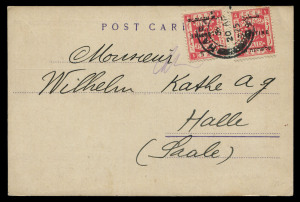 POST CARD
Monsieur
Wilhelm Kathe A G
Halle
(Saale)